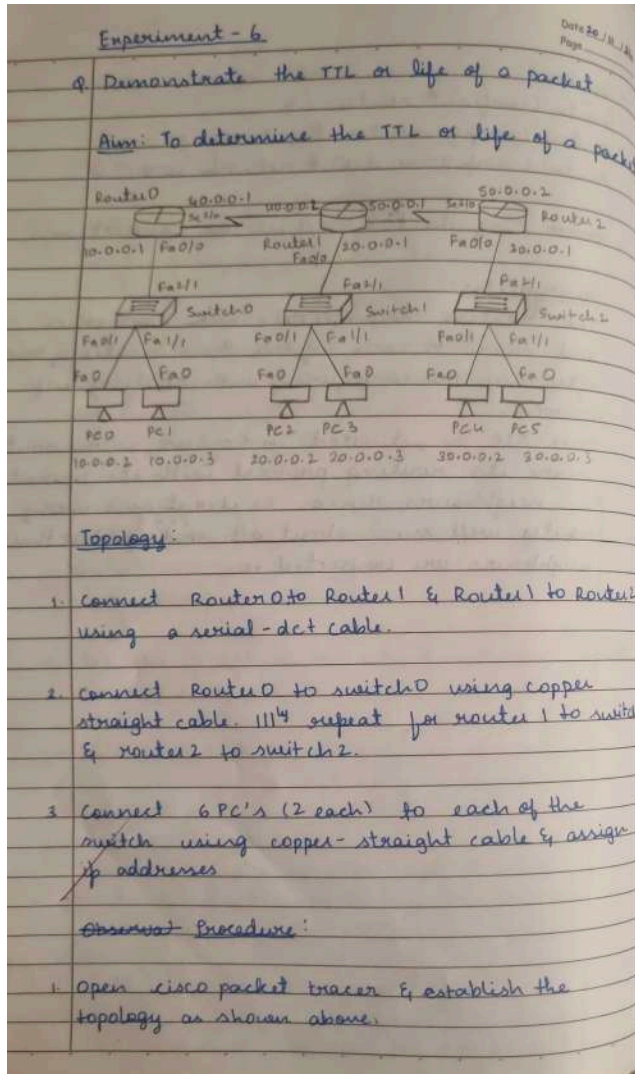 Experiment - 6
Date 20 / 11 /
Page
Q. Demonstrate the TTL or life of a packet
Aim: To determine the TTL or life of a packet
Router0 40.0.0.1 40.0.0.2 50.0.0.1 50.0.0.2
Se2/0 Se2/0 Router2
10.0.0.1 Fa0/0 Router1 20.0.0.1 Fa0/0 30.0.0.1
Fa0/0
Fa2/1 Fa2/1 Fa2/1
Switch0 Switch1 Switch2
Fa0/1 Fa1/1 Fa0/1 Fa1/1 Fa0/1 Fa1/1
Fa0 Fa0 Fa0 Fa0 Fa0 Fa0
PC0 PC1 PC2 PC3 PC4 PC5
10.0.0.2 10.0.0.3 20.0.0.2 20.0.0.3 30.0.0.2 30.0.0.3
Topology:
1. Connect Router0 to Router1 & Router1 to Router2
using a serial-dct cable.
2. Connect Router0 to switch0 using copper
straight cable. |||ly repeat for router 1 to switch
& router2 to switch2.
3 Connect 6 PC's (2 each) to each of the
switch using copper-straight cable & assign
ip addresses
Observat Procedure:
1. Open cisco packet tracer & establish the
topology as shown above.